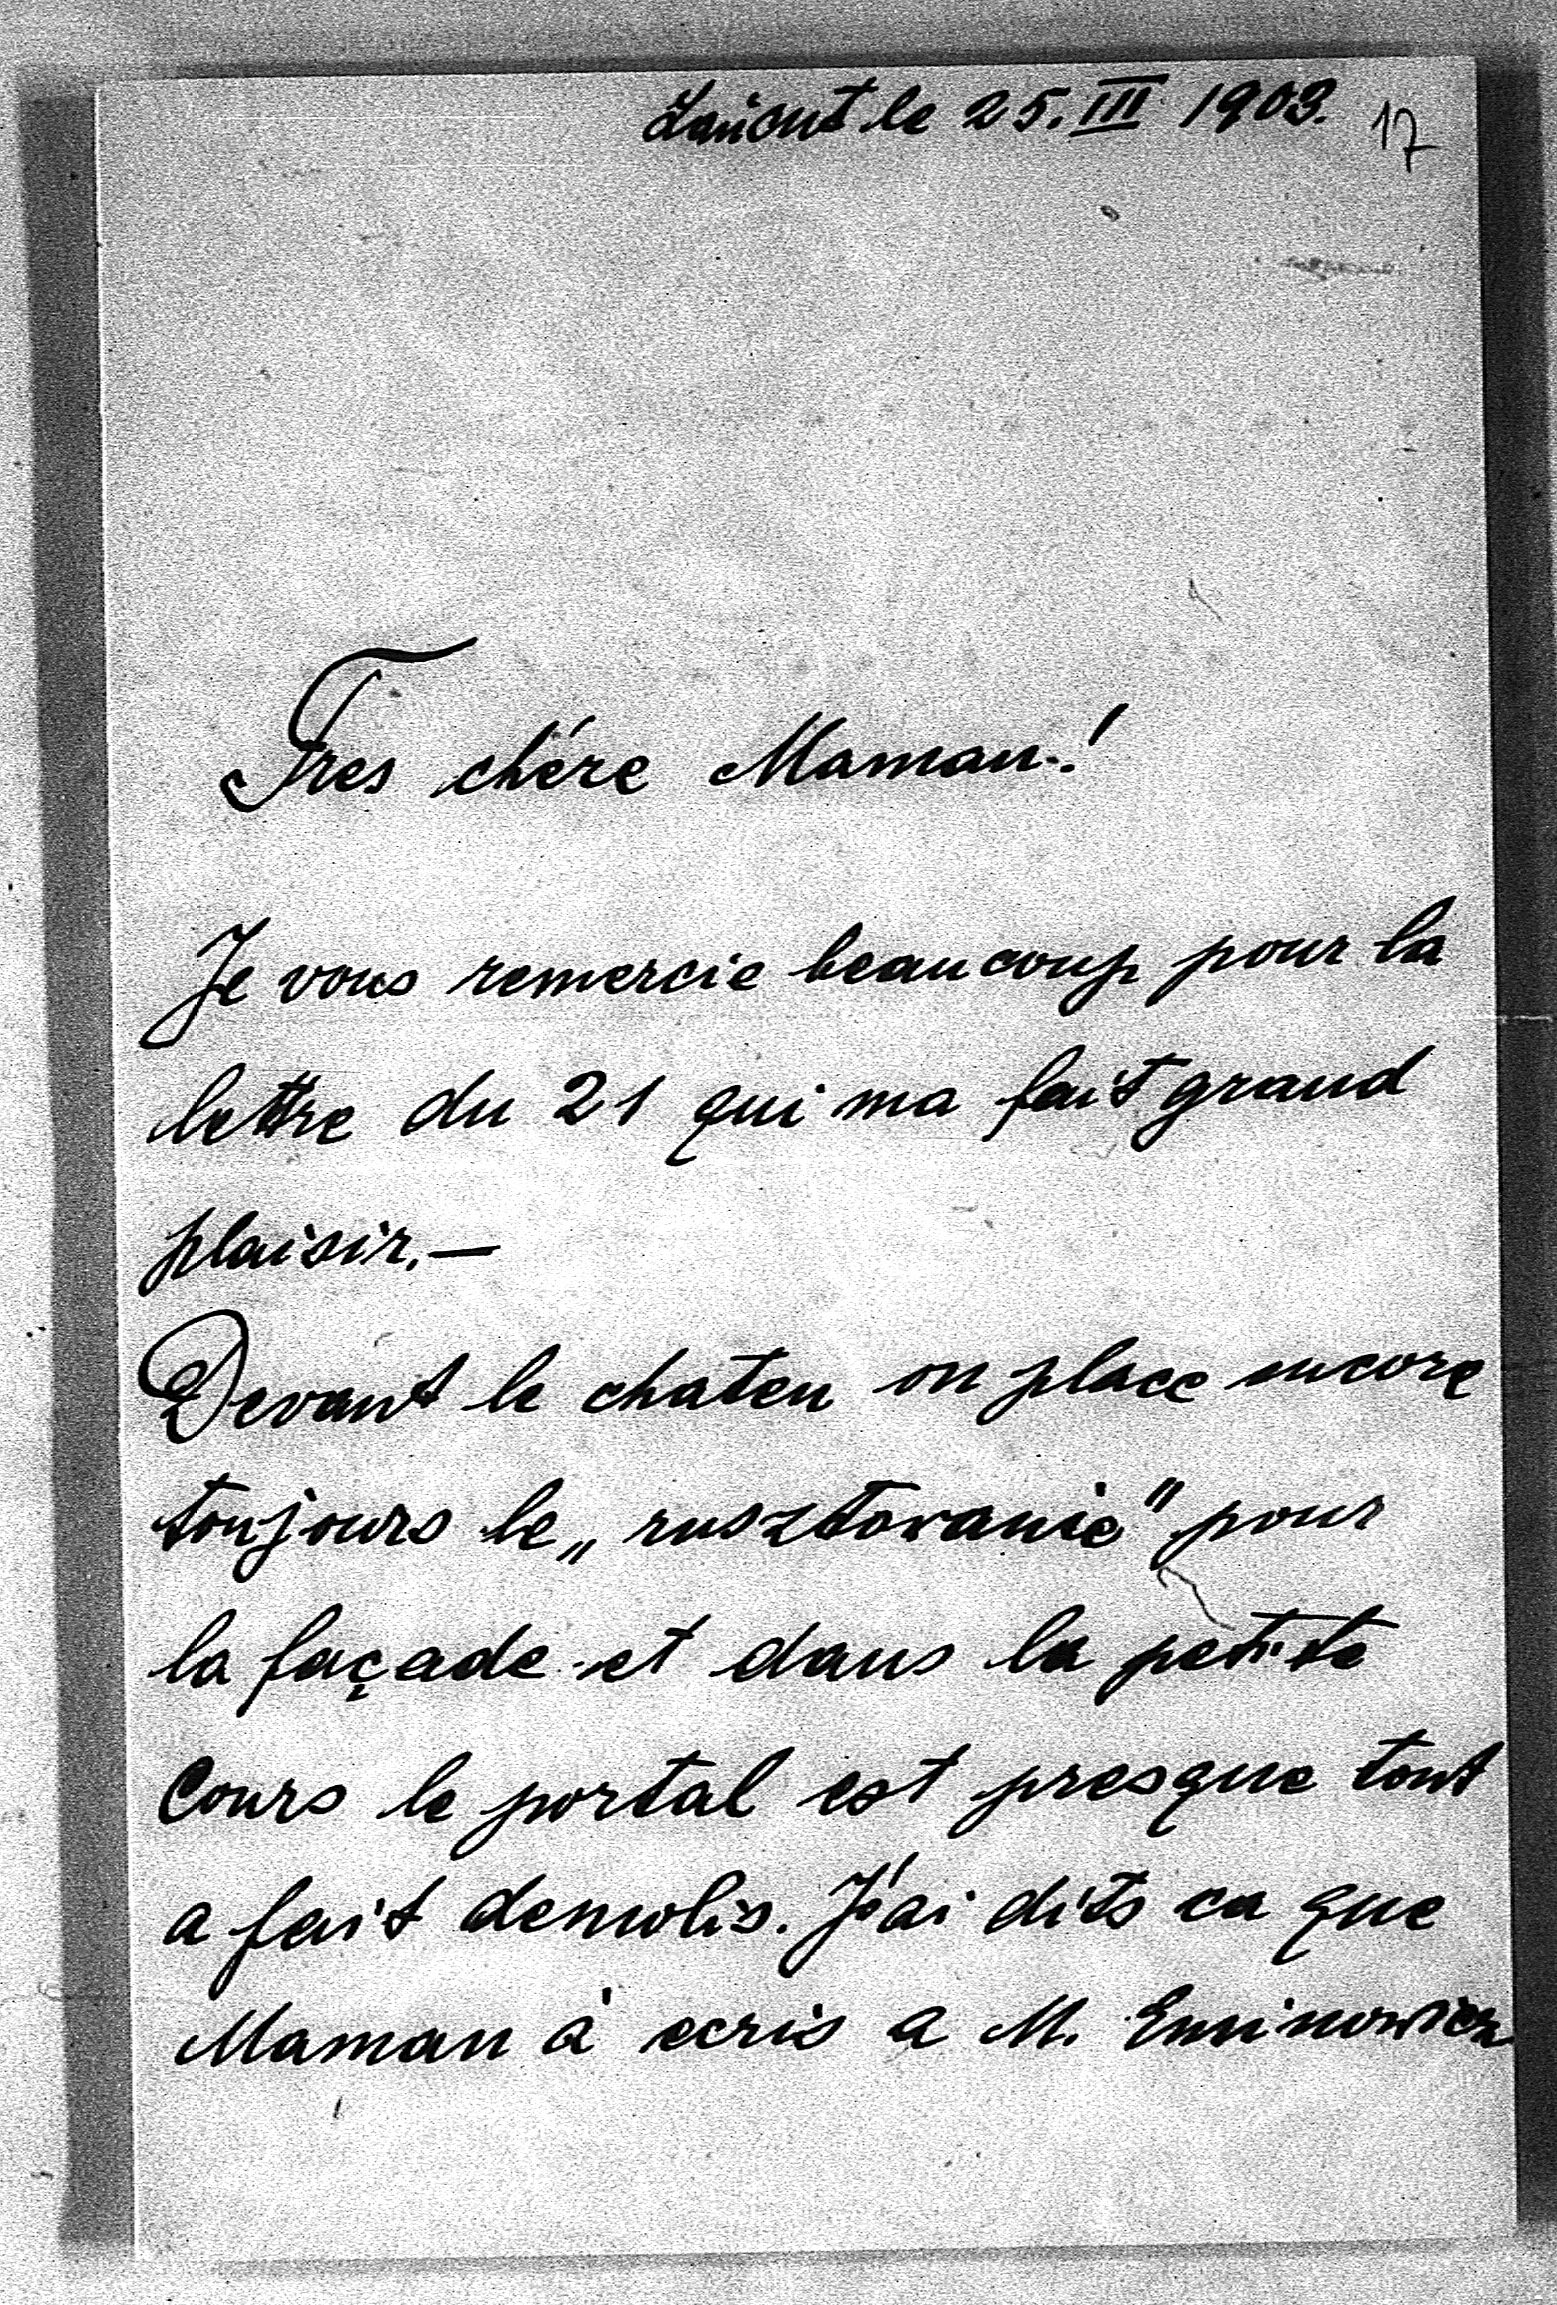 Łańcut le 25. III 1903. 17
Tres chére Maman.!
Je vous remercie beaucoup pour la
lettre du 21 qui ma fait grand
plaisir.—
Devant le chateu on place encore
toujours le „rusztovanie" pour
la façade et dans la petite
Cours le portal est presque tout
a fait demolis. J'ai dits ca que
Maman à ecris a M. Eminowicz